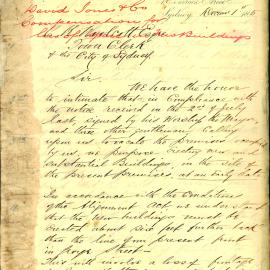 David Jones & Co
Compensation for
Buildings
Town Clerk
of the City of Sydney
Sir
We have the honor
to intimate that in compliance with
the notice received in the 2nd of July
last, signed by his Worship the Mayor
and three other gentlemen calling
upon us to vacate the premises occupied
by us, we propose erecting new and
substantial Buildings, on the site of
the present Premises, at an early date
In accordance with the Conditions
of the Alignment Act we understand
that the new buildings must be
erected about six feet further back
than the line of our present front
in George Street.
This will involve a loss of frontage